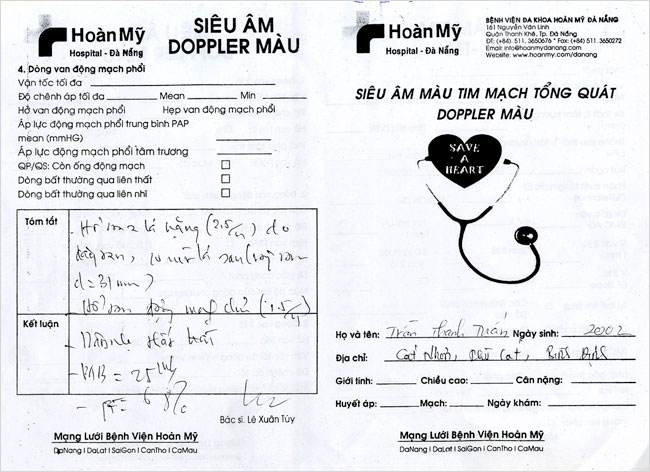 Hoàn Mỹ
Hospital - Đà Nẵng
SIÊU ÂM
DOPPLER MÀU
4. Dòng van động mạch phổi
Vận tốc tối đa
Độ chênh áp tối đa Mean Min
Hở van động mạch phổi Hẹp van động mạch phổi
Áp lực động mạch phổi trung bình PAP
mean (mmHG)
Áp lực động mạch phổi tâm trương
QP/QS: Còn ống động mạch
Dòng bất thường qua liên thất
Dòng bất thường qua liên nhĩ
Tóm tắt
- Hở van 2 lá nặng (2.5/4) do
d = 31 mm)
- Hở van động mạch chủ (1.5/4)
Kết luận
- PAPs = 25
- EF = 68%
Bác sĩ. Lê Xuân Túy
Mạng Lưới Bệnh Viện Hoàn Mỹ
DaNang I DaLat I SaiGon I CanTho I CaMau
Hoàn Mỹ
Hospital - Đà Nẵng
BỆNH VIỆN ĐA KHOA HOÀN MỸ ĐÀ NẴNG
161 Nguyễn Văn Linh
Quận Thanh Khê, Tp. Đà Nẵng
ĐT: (+84) 511. 3650676 * Fax: (+84) 511. 3650272
Email: info@hoanmydanang.com
Website: www.hoanmy.com/danang
SIÊU ÂM MÀU TIM MẠCH TỔNG QUÁT
DOPPLER MÀU
SAVE
A
HEART
Họ và tên: Trần Thanh Ngày sinh: 2002
Địa chỉ: Cát Nhơn, Phù Cát, Bình Định
Giới tính: Chiều cao: Cân nặng:
Huyết áp: Mạch: Ngày khám:
Mạng Lưới Bệnh Viện Hoàn Mỹ
DaNang I DaLat I SaiGon I CanTho I CaMau